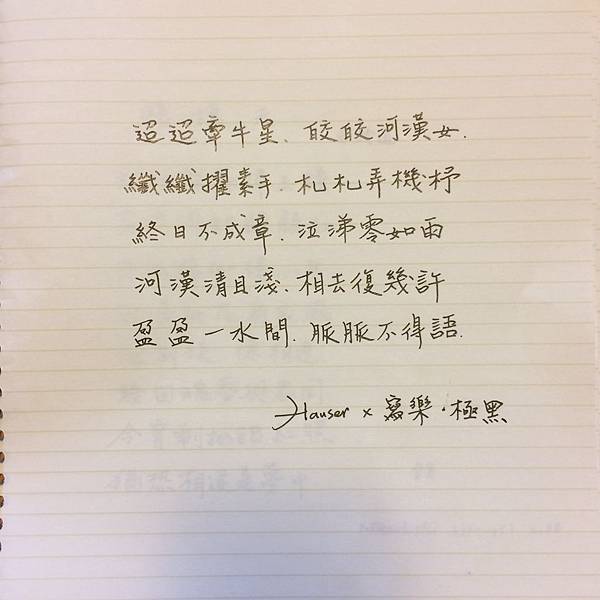 迢迢牽牛星、皎皎河漢女.
纖纖擢素手、札札弄機杼
終日不成章、泣涕零如雨
河漢清且淺、相去復幾許
盈盈一水間、脈脈不得語.
Hauser x 寫樂·極黑